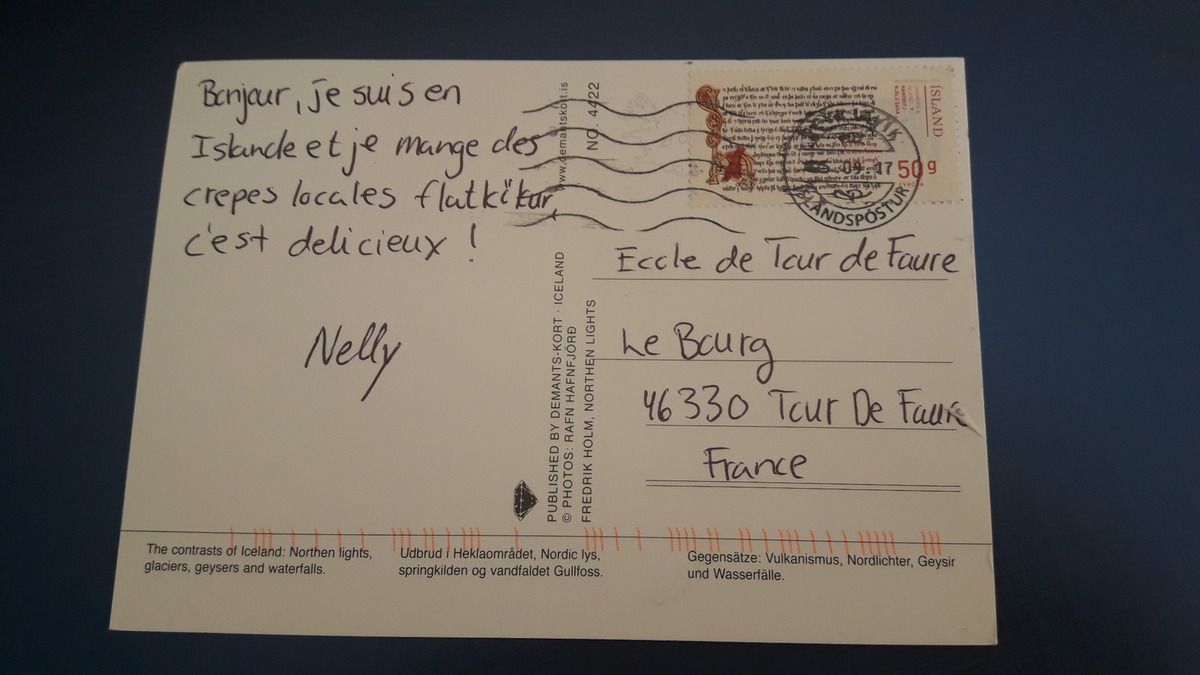 Bonjour, je suis en
Islande et je mange des
crepes locales flatkïkur,
c'est delicieux !
Nelly
www.demantskort.is
NO. 4422
PUBLISHED BY DEMANTS-KORT · ICELAND
© PHOTOS: RAFN HAFNFJÖRÐ
FREDRIK HOLM, NORTHEN LIGHTS
ISLAND
50g
EVRÓPA
09 17
ÍSLANDSPÓSTUR
Ecole de Tour de Faure
Le Bourg
46330 Tour De Faure
France
The contrasts of Iceland: Northen lights,
glaciers, geysers and waterfalls.
Udbrud i Heklaområdet, Nordic lys,
springkilden og vandfaldet Gullfoss.
Gegensätze: Vulkanismus, Nordlichter, Geysir
und Wasserfälle.